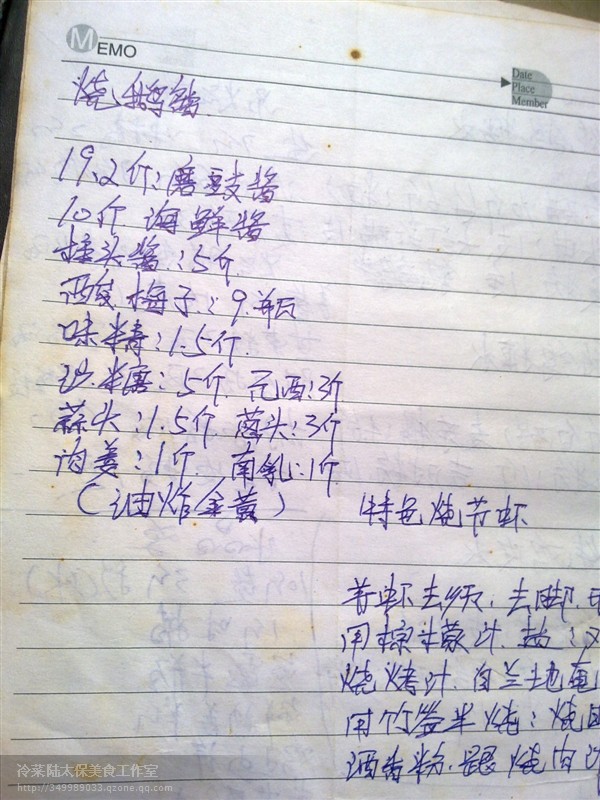 MEMO
Date
Place
Member
烧鹅酱
19.2斤:磨豉酱
10斤 海鲜酱
柱头酱:5斤
酸梅子:9瓶
味精:1.5斤
沙糖:5斤 花酒:3斤
蒜头:1.5斤 葱头:3斤
肉姜:1斤 南乳:1斤
(油炸金黄)
特色烧节虾
节虾去须,去脚
用柠檬汁.盐
烧烤汁.白兰地
用竹签半烧:烧
洒香粉.跟烧肉
冷菜陆太保美食工作室
http://349989033.qzone.qq.com